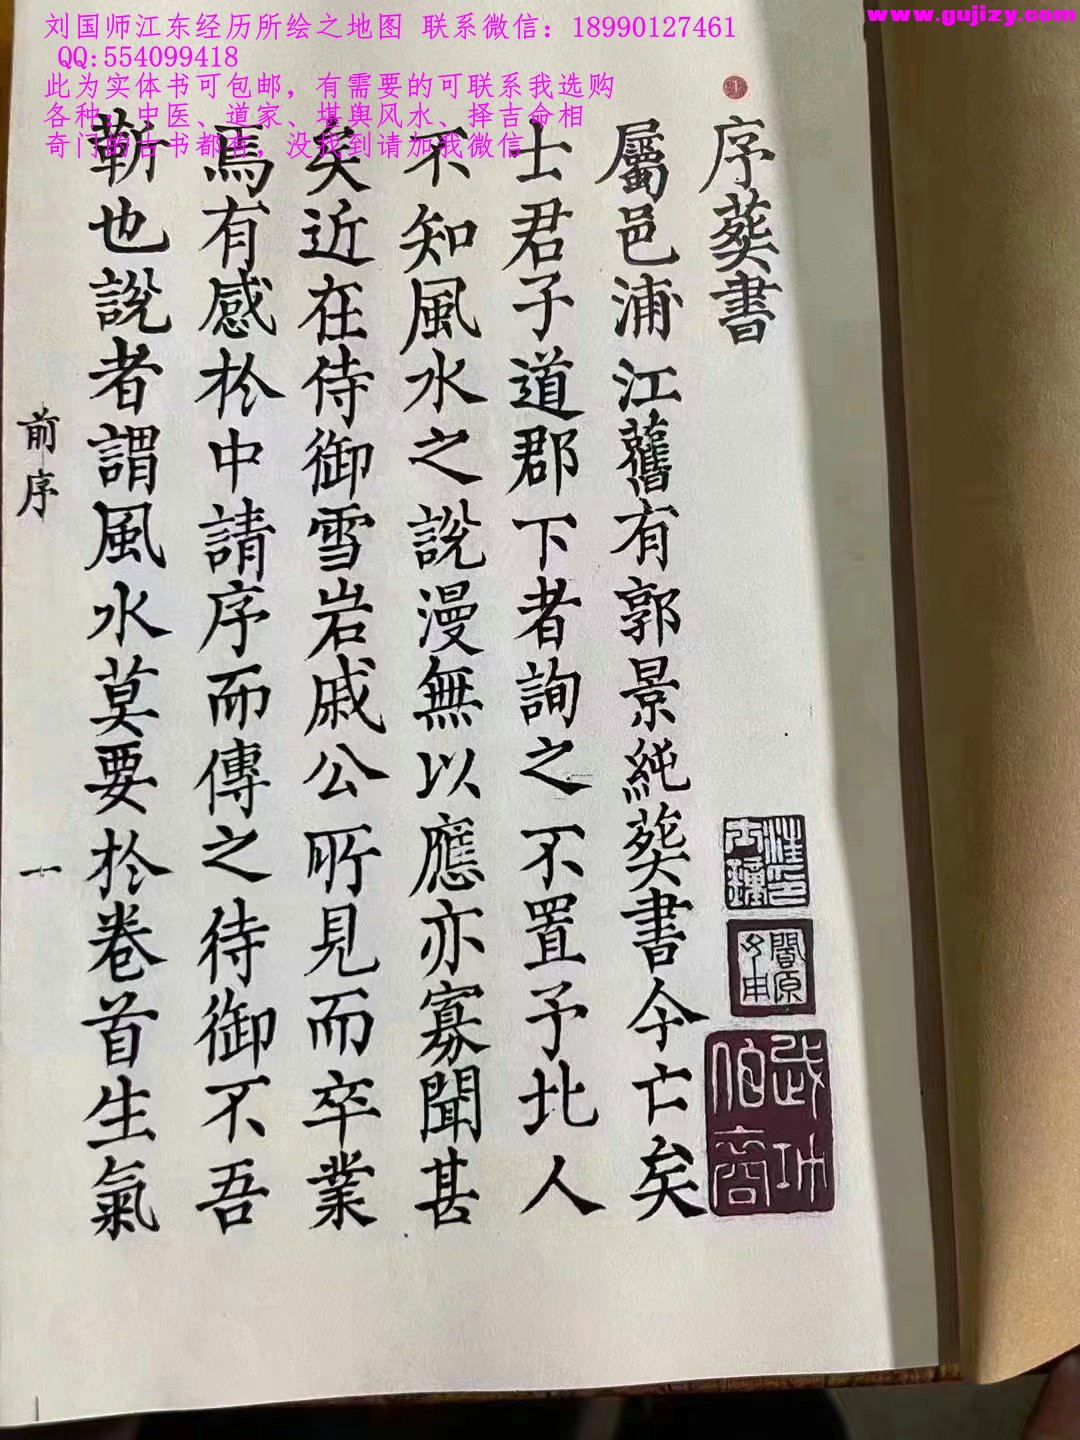 刘国师江东经历所绘之地图 联系微信：18990127461
QQ:554099418
此为实体书可包邮，有需要的可联系我选购
各种，中医、道家、堪舆风水、择吉命相
奇门的古书都有，没找到请加我微信
www.gujizy.com
1
序葬書
屬邑浦江舊有郭景純葬書今亡矣
士君子道郡下者詢之不置予北人
不知風水之說漫無以應亦寡聞甚
矣近在侍御雪岩戚公所見而卒業
焉有感於中請序而傳之待御不吾
靳也說者謂風水莫要於卷首生氣
前序
一
武功
伯商